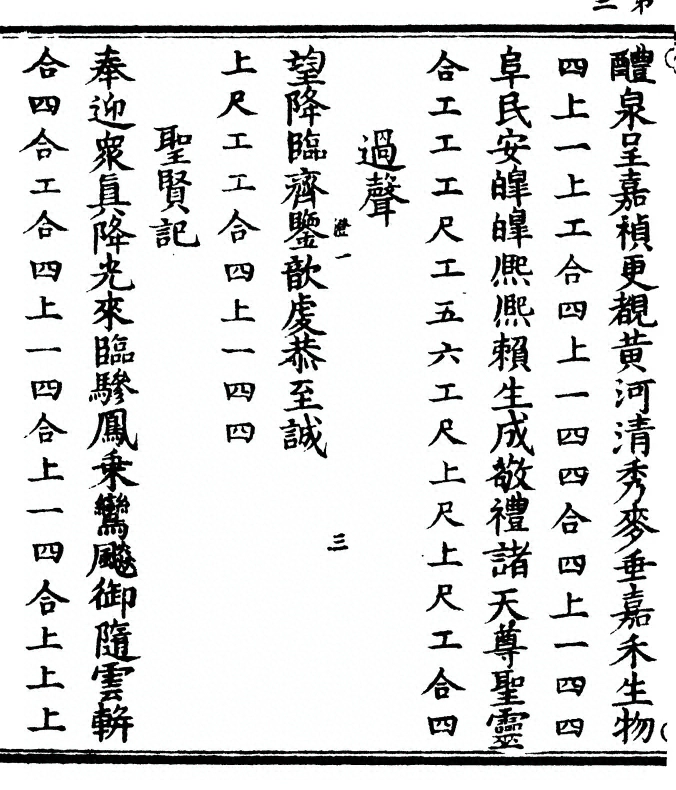 醴泉呈嘉禎更覩黃河清秀麥垂嘉禾生物
四上一上工合四上一四四合四上一四四
阜民安皥皥熈熈賴生成敬禮諸天尊聖靈
合工工工尺工五六工尺上尺上尺工合四
過聲
澄一 三
望降臨濟鑒歆虔恭至誠
上尺工工合四上一四四
聖賢記
奉迎衆眞降光來臨驂鳳乗鸞飈御隨雲軿
合四合工合四上一四合上一四合上上上